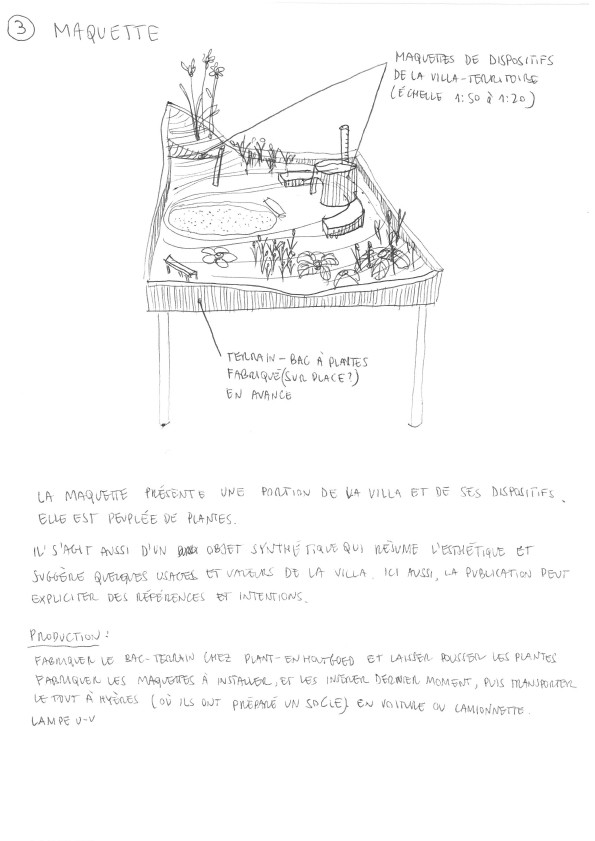 3 MAQUETTE
MAQUETTES DE DISPOSITIFS
DE LA VILLA-TERRITOIRE
(ÉCHELLE 1:50 à 1:20)
TERRAIN-BAC À PLANTES
FABRIQUÉ (SUR PLACE?)
EN AVANCE
LA MAQUETTE PRÉSENTE UNE PORTION DE LA VILLA ET DE SES DISPOSITIFS.
ELLE EST PEUPLÉE DE PLANTES.
IL S'AGIT AUSSI D'UN OBJET SYNTHÉTIQUE QUI RÉSUME L'ESTHÉTIQUE ET
SUGGÈRE QUELQUES USAGES ET VALEURS DE LA VILLA. ICI AUSSI, LA PUBLICATION PEUT
EXPLICITER DES RÉFÉRENCES ET INTENTIONS.
PRODUCTION:
FABRIQUER LE BAC-TERRAIN CHEZ PLANT-EN HOUTGOED ET LAISSER POUSSER LES PLANTES
FABRIQUER LES MAQUETTES À INSTALLER, ET LES INSÉRER DERNIER MOMENT, PUIS TRANSPORTER
LE TOUT À HYÈRES (OÙ ILS ONT PRÉPARÉ UN SOCLE) EN VOITURE OU CAMIONNETTE.
LAMPE U-V